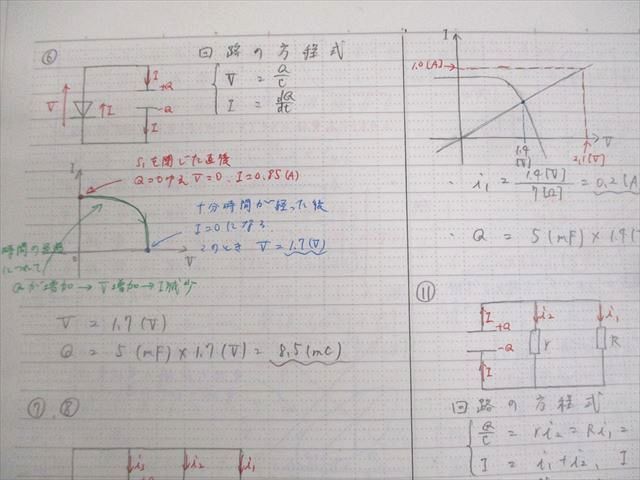 ⑥
回路の方程式
V = Q/C
I = dQ/dt
I
+Q
-Q
I
V
I
S₁を閉じた直後
Q=0ゆえ V=0. I=0.85(A)
I
十分時間が経った後
I=0になる
このとき V=1.7(V)
V
0
時間の経過
につれて
Qが増加→V増加→I減少
V = 1.7(V)
Q = 5(mF)×1.7(V) = 8.5(mC)
⑦、⑧
i₃
i₂
i₁
I
1.0(A)
V
1.4
(V)
2.1(V)
i₁ = 1.4(V)/7(Ω) = 0.2(A
Q = 5(mF)×1.4(
⑪
I
+Q
-Q
I
i₂
r
i₁
R
回路の方程式
Q/C = ri₂ = Ri₁ =
I = i₁+i₂, I